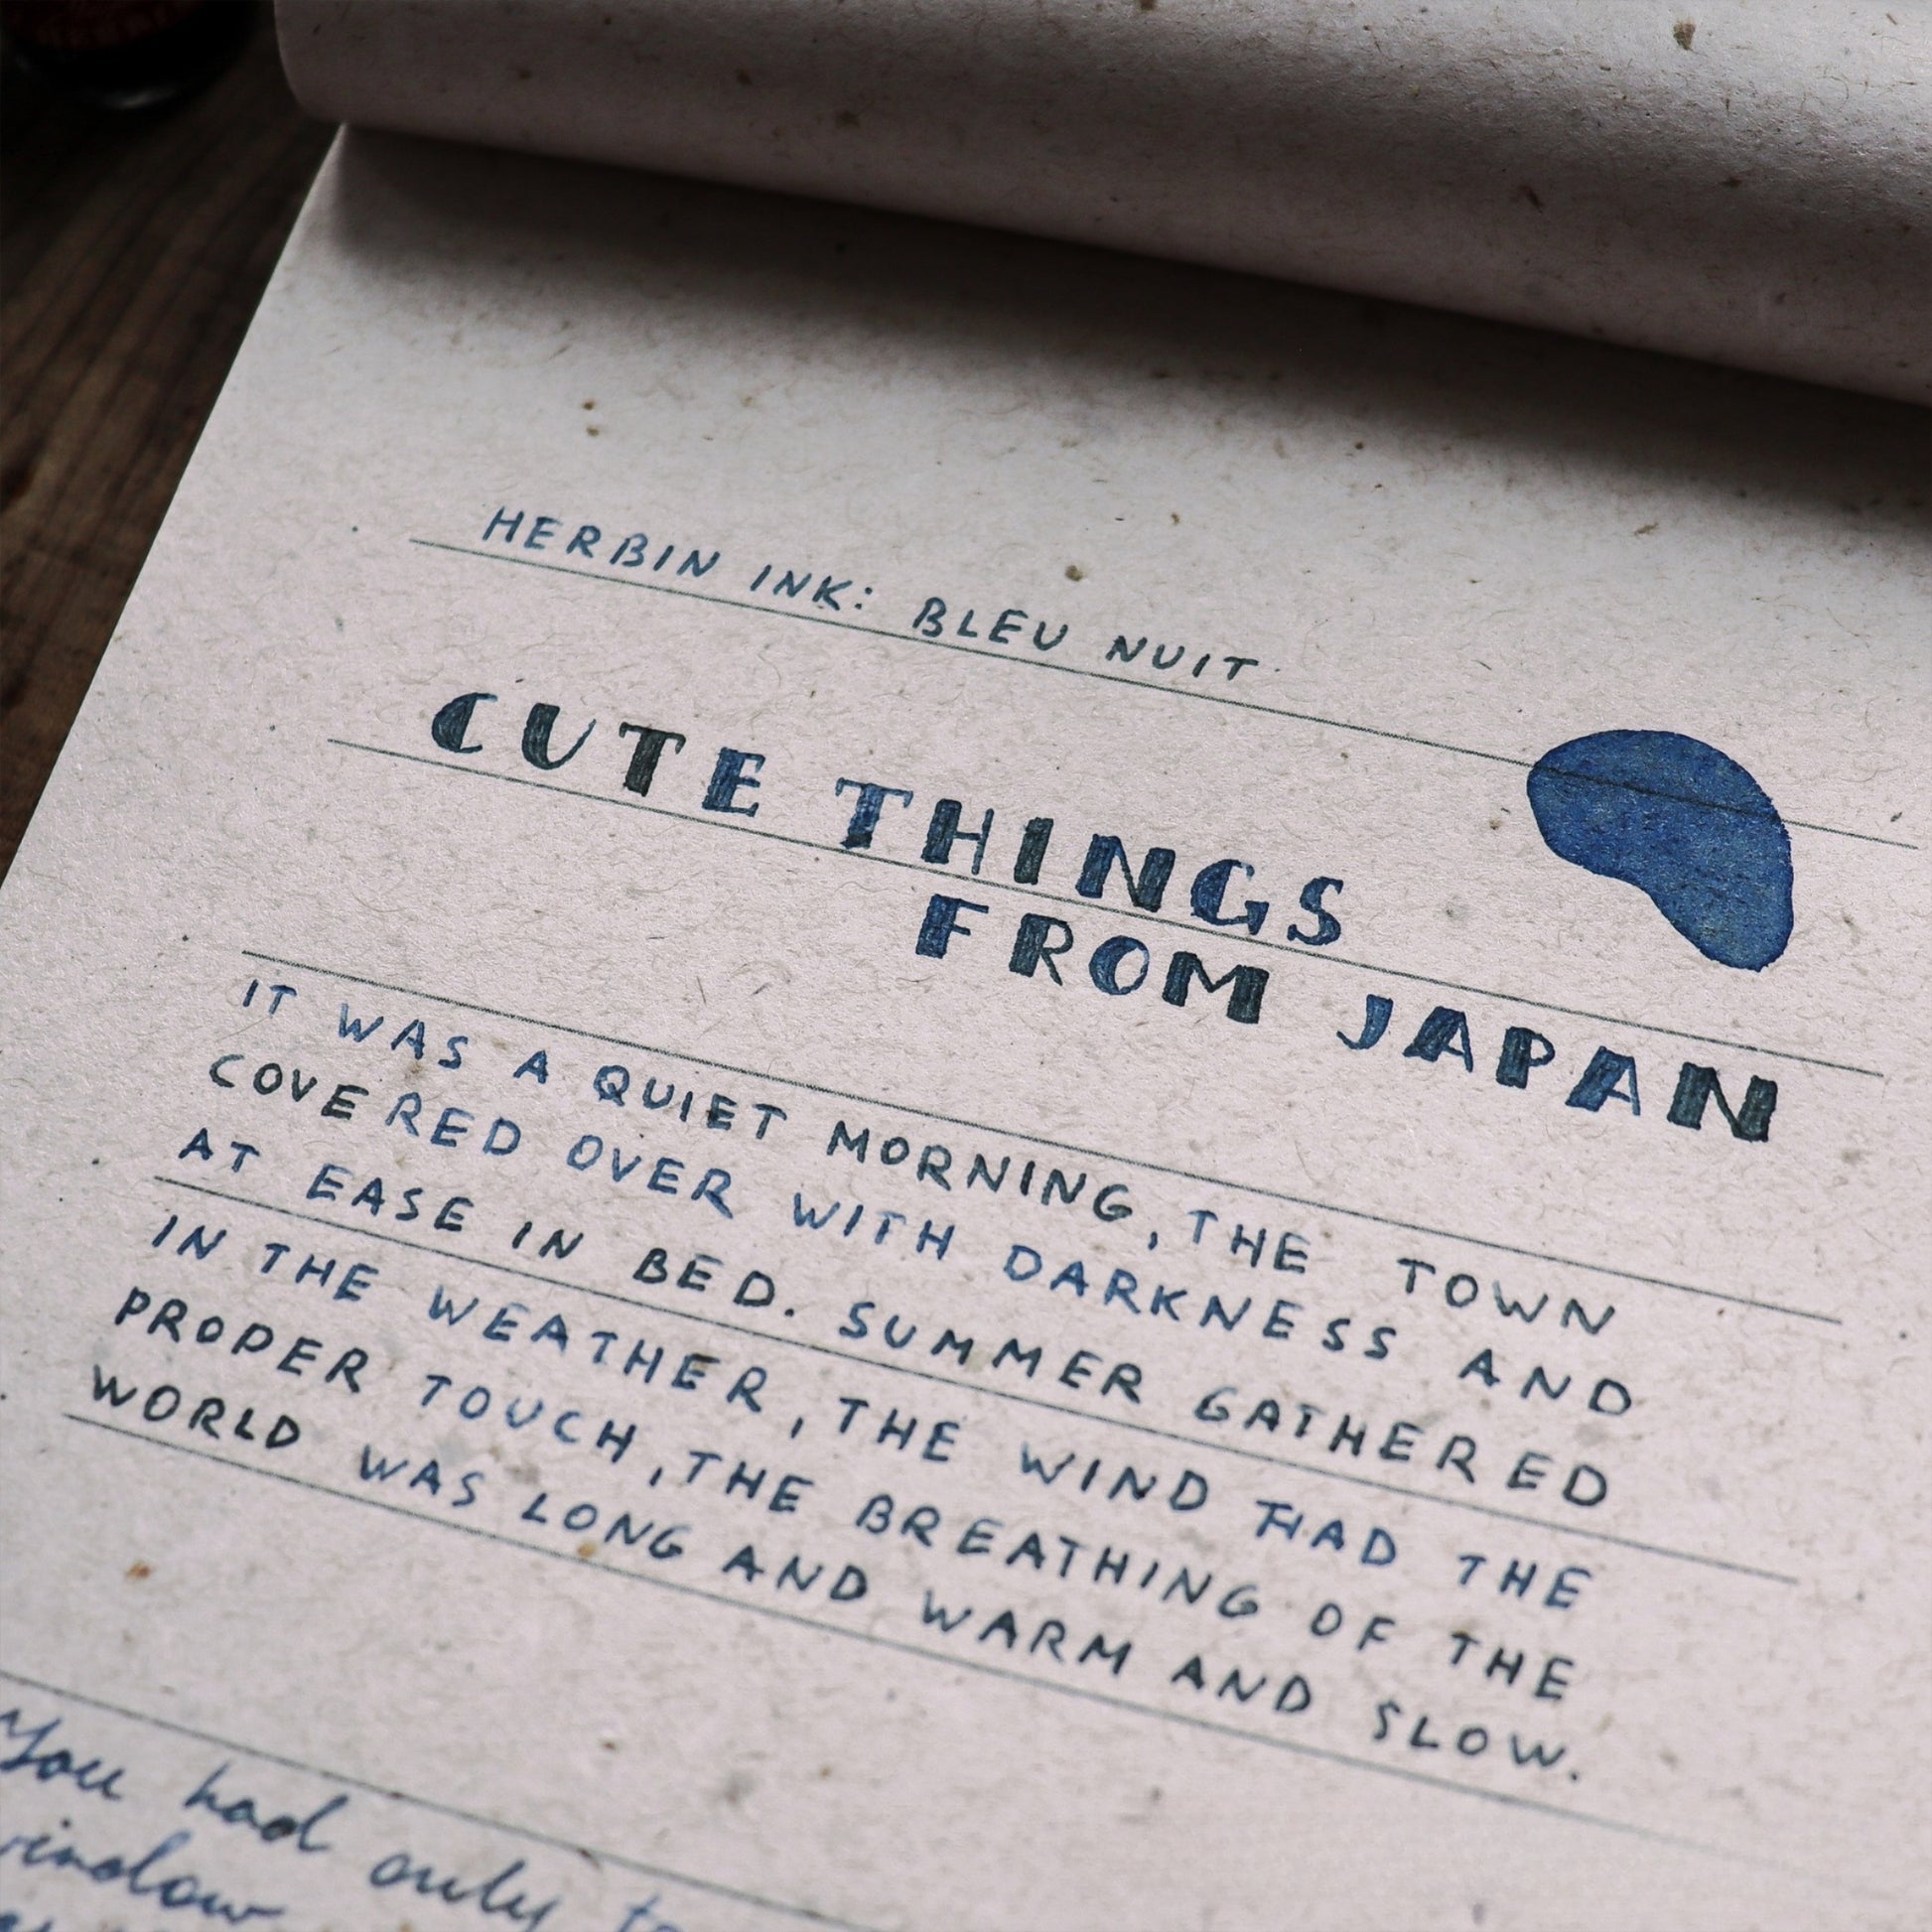 HERBIN INK: BLEU NUIT
CUTE THINGS
FROM JAPAN
IT WAS A QUIET MORNING, THE TOWN
COVERED OVER WITH DARKNESS AND
AT EASE IN BED. SUMMER GATHERED
IN THE WEATHER, THE WIND HAD THE
PROPER TOUCH, THE BREATHING OF THE
WORLD WAS LONG AND WARM AND SLOW.
You had only